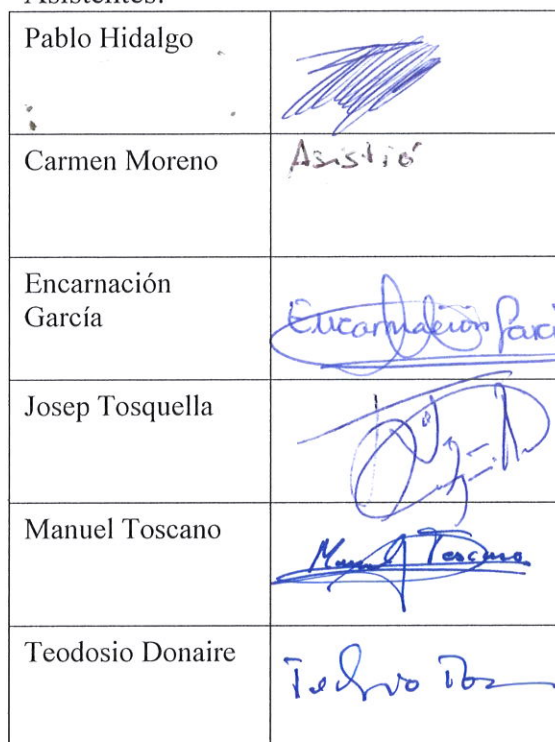 Asistentes:
Pablo Hidalgo
Carmen Moreno
Asistió
Encarnación
García
Encarnación Garcí
Josep Tosquella
Manuel Toscano
Manuel Toscano
Teodosio Donaire